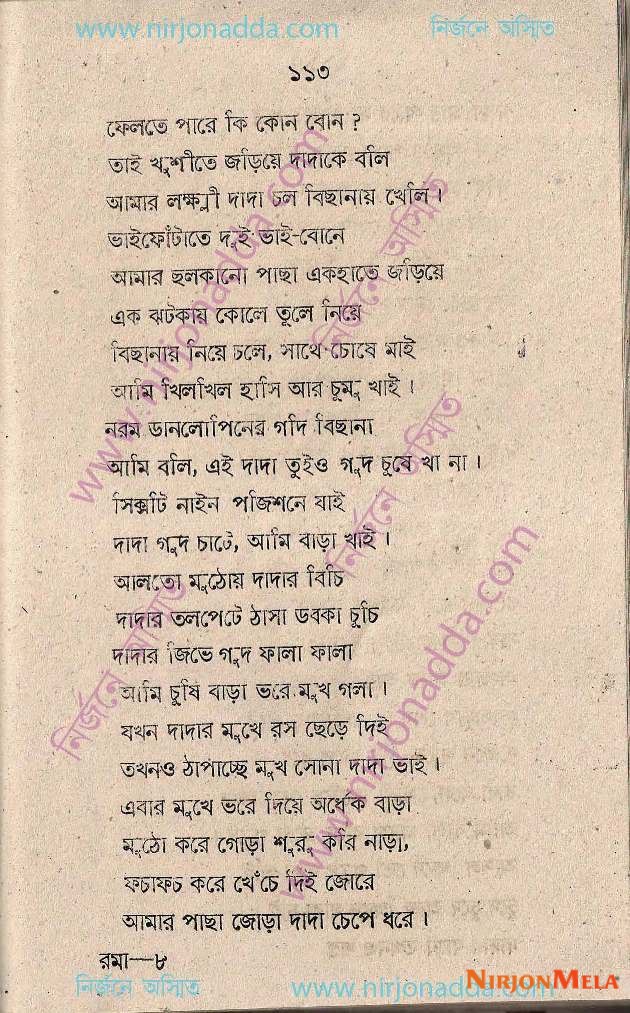 www.nirjonadda.com নির্জনে অস্মিত
১১৩
ফেলতে পারে কি কোন বোন ?
তাই খুশীতে জড়িয়ে দাদাকে বলি
আমার লক্ষ্মী দাদা চল বিছানায় খেলি ।
ভাইফোঁটাতে দুই ভাই-বোনে
আমার ছলকানো পাছা একহাতে জড়িয়ে
এক ঝটকায় কোলে তুলে নিয়ে
বিছানায় নিয়ে চলে, সাথে চোষে মাই
আমি খিলখিল হাসি আর চুমু খাই ।
নরম ডানলোপিনের গদি বিছানা
আমি বলি, এই দাদা তুইও গুদ চুষে খা না ।
সিক্সটি নাইন পজিশনে যাই
দাদা গুদ চাটে, আমি বাড়া খাই ।
আলতো মুঠোয় দাদার বিচি
দাদার তলপেটে ঠাসা ডবকা চুচি
দাদার জিভে গুদ ফালা ফালা
আমি চুষি বাড়া ভরে মুখ গলা ।
যখন দাদার মুখে রস ছেড়ে দিই
তখনও ঠাপাচ্ছে মুখ সোনা দাদা ভাই ।
এবার মুখে ভরে দিয়ে অর্ধেক বাড়া
মুঠো করে গোড়া শুরু করি নাড়া,
ফচাফচ করে খেঁচে দিই জোরে
আমার পাছা জোড়া দাদা চেপে ধরে ।
রমা—৮
নির্জনে অস্মিত www.nirjonadda.com
NIRJONMELA
www.nirjonadda.com
নির্জনে অস্মিত
নির্জনে অস্মিত
www.nirjonadda.com
নির্জনে অস্মিত